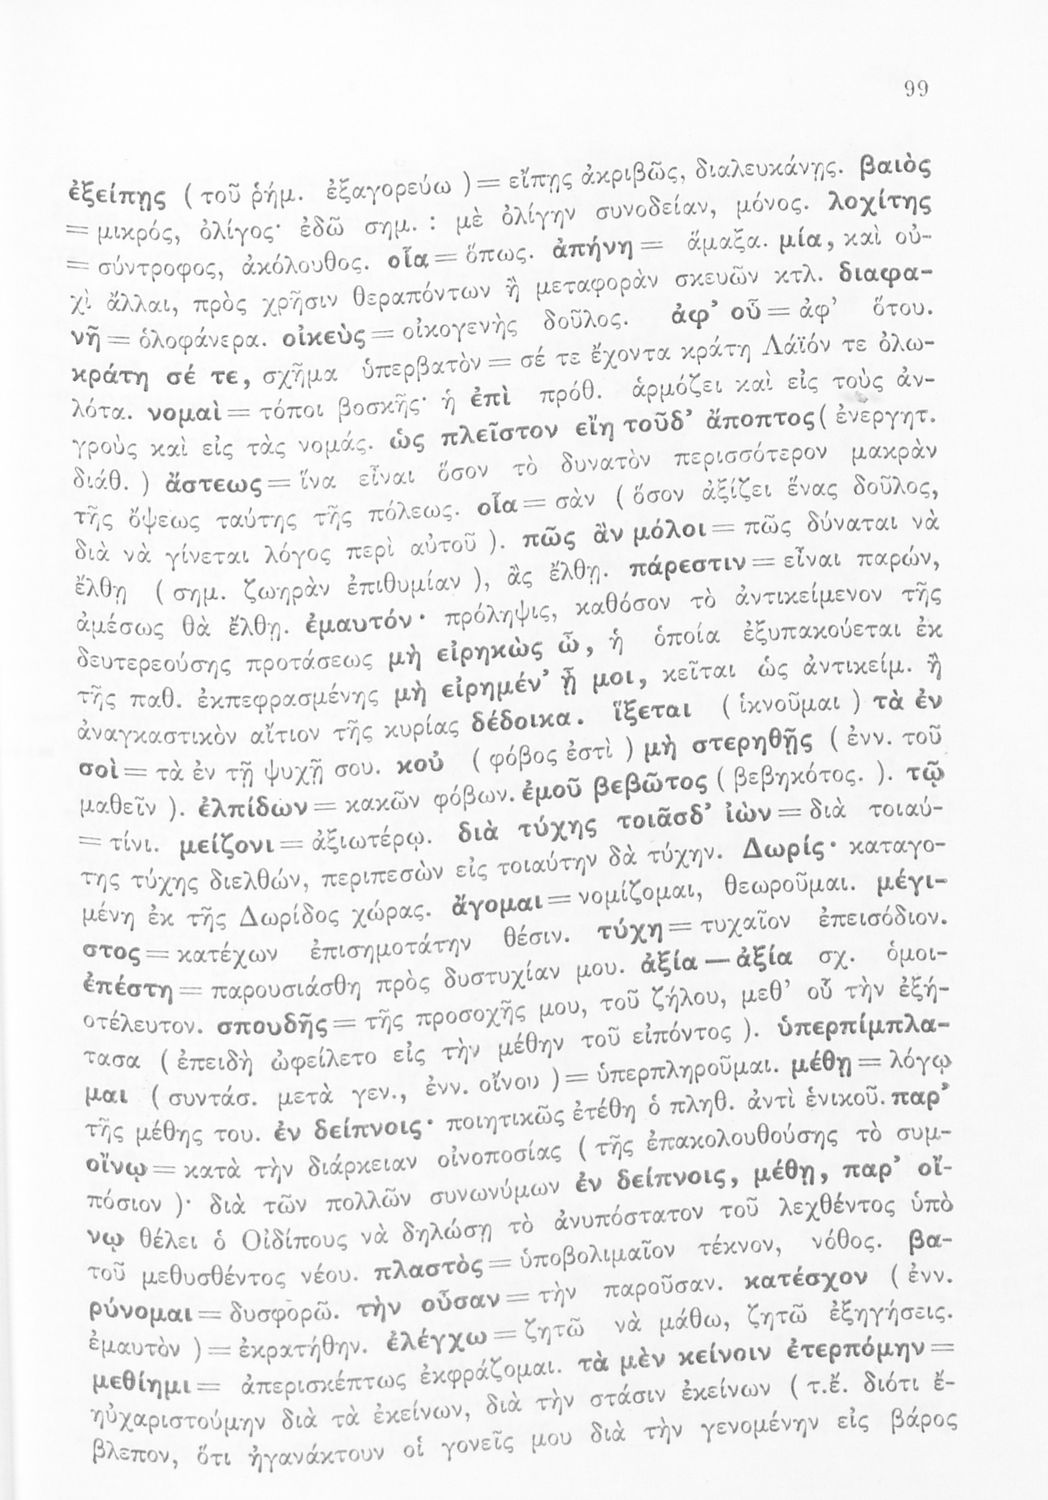 99
ἐξείπῃς ( τοῦ ῥήμ. ἐξαγορεύω ) = εἴπῃς ἀκριβῶς, διαλευκάνῃς. βαιὸς
= μικρός, ὀλίγος· ἐδῶ σημ. : μὲ ὀλίγην συνοδείαν, μόνος. λοχίτης
= σύντροφος, ἀκόλουθος. οἷα = ὅπως. ἀπήνη = ἅμαξα. μία, καὶ οὐ-
χὶ ἄλλαι, πρὸς χρῆσιν θεραπόντων ἢ μεταφορὰν σκευῶν κτλ. διαφα-
νῆ = ὁλοφάνερα. οἰκεὺς = οἰκογενὴς δοῦλος. ἀφ' οὗ = ἀφ' ὅτου.
κράτη σέ τε, σχῆμα ὑπερβατὸν = σέ τε ἔχοντα κράτη Λάϊόν τε ὀλω-
λότα. νομαὶ = τόποι βοσκῆς· ἡ ἐπὶ πρόθ. ἁρμόζει καὶ εἰς τοὺς ἀν-
γροὺς καὶ εἰς τὰς νομάς. ὡς πλεῖστον εἴη τοῦδ' ἄποπτος ( ἐνεργητ.
διάθ. ) ἄστεως = ἵνα εἶναι ὅσον τὸ δυνατὸν περισσότερον μακρὰν
τῆς ὄψεως ταύτης τῆς πόλεως. οἷα = σὰν ( ὅσον ἀξίζει ἕνας δοῦλος,
διὰ νὰ γίνεται λόγος περὶ αὐτοῦ ). πῶς ἂν μόλοι = πῶς δύναται νὰ
ἔλθῃ ( σημ. ζωηρὰν ἐπιθυμίαν ), ἂς ἔλθῃ. πάρεστιν = εἶναι παρών,
ἀμέσως θὰ ἔλθῃ. ἐμαυτόν· πρόληψις, καθόσον τὸ ἀντικείμενον τῆς
δευτερεούσης προτάσεως μὴ εἰρηκὼς ὦ, ἡ ὁποία ἐξυπακούεται ἐκ
τῆς παθ. ἐκπεφρασμένης μὴ εἰρημέν' ᾖ μοι, κεῖται ὡς ἀντικείμ. ἢ
ἀναγκαστικὸν αἴτιον τῆς κυρίας δέδοικα. ἵξεται ( ἱκνοῦμαι ) τὰ ἐν
σοὶ = τὰ ἐν τῇ ψυχῇ σου. κοὐ ( φόβος ἐστὶ ) μὴ στερηθῇς ( ἐνν. τοῦ
μαθεῖν ). ἐλπίδων = κακῶν φόβων. ἐμοῦ βεβῶτος ( βεβηκότος. ). τῷ
= τίνι. μείζονι = ἀξιωτέρῳ. διὰ τύχης τοιᾶσδ' ἰὼν = διὰ τοιαύ-
της τύχης διελθών, περιπεσὼν εἰς τοιαύτην δὰ τύχην. Δωρίς· καταγο-
μένη ἐκ τῆς Δωρίδος χώρας. ἄγομαι = νομίζομαι, θεωροῦμαι. μέγι-
στος = κατέχων ἐπισημοτάτην θέσιν. τύχη = τυχαῖον ἐπεισόδιον.
ἐπέστη = παρουσιάσθη πρὸς δυστυχίαν μου. ἀξία — ἀξία σχ. ὁμοι-
οτέλευτον. σπουδῆς = τῆς προσοχῆς μου, τοῦ ζήλου, μεθ' οὗ τὴν ἐξή-
τασα ( ἐπειδὴ ὠφείλετο εἰς τὴν μέθην τοῦ εἰπόντος ). ὑπερπίμπλα-
μαι ( συντάσ. μετὰ γεν., ἐνν. οἴνου ) = ὑπερπληροῦμαι. μέθῃ = λόγῳ
τῆς μέθης του. ἐν δείπνοις· ποιητικῶς ἐτέθη ὁ πληθ. ἀντὶ ἑνικοῦ. παρ'
οἴνῳ = κατὰ τὴν διάρκειαν οἰνοποσίας ( τῆς ἐπακολουθούσης τὸ συμ-
πόσιον )· διὰ τῶν πολλῶν συνωνύμων ἐν δείπνοις, μέθῃ, παρ' οἴ-
νῳ θέλει ὁ Οἰδίπους νὰ δηλώσῃ τὸ ἀνυπόστατον τοῦ λεχθέντος ὑπὸ
τοῦ μεθυσθέντος νέου. πλαστὸς = ὑποβολιμαῖον τέκνον, νόθος. βα-
ρύνομαι = δυσφορῶ. τὴν οὖσαν = τὴν παροῦσαν. κατέσχον ( ἐνν.
ἐμαυτὸν ) = ἐκρατήθην. ἐλέγχω = ζητῶ νὰ μάθω, ζητῶ ἐξηγήσεις.
μεθίημι = ἀπερισκέπτως ἐκφράζομαι. τὰ μὲν κείνοιν ἐτερπόμην =
ηὐχαριστούμην διὰ τὰ ἐκείνων, διὰ τὴν στάσιν ἐκείνων ( τ.ἔ. διότι ἔ-
βλεπον, ὅτι ἠγανάκτουν οἱ γονεῖς μου διὰ τὴν γενομένην εἰς βάρος